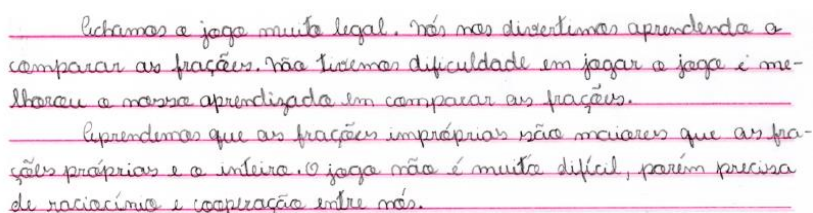 Achamos o jogo muito legal. Nós nos divertimos aprendendo a
comparar as frações. Não tivemos dificuldade em jogar o jogo e me-
lhorou o nosso aprendizado em comparar as frações.
Aprendemos que as frações impróprias são maiores que as fra-
ções próprias e o inteiro. O jogo não é muito difícil, porém precisa
de raciocínio e cooperação entre nós.